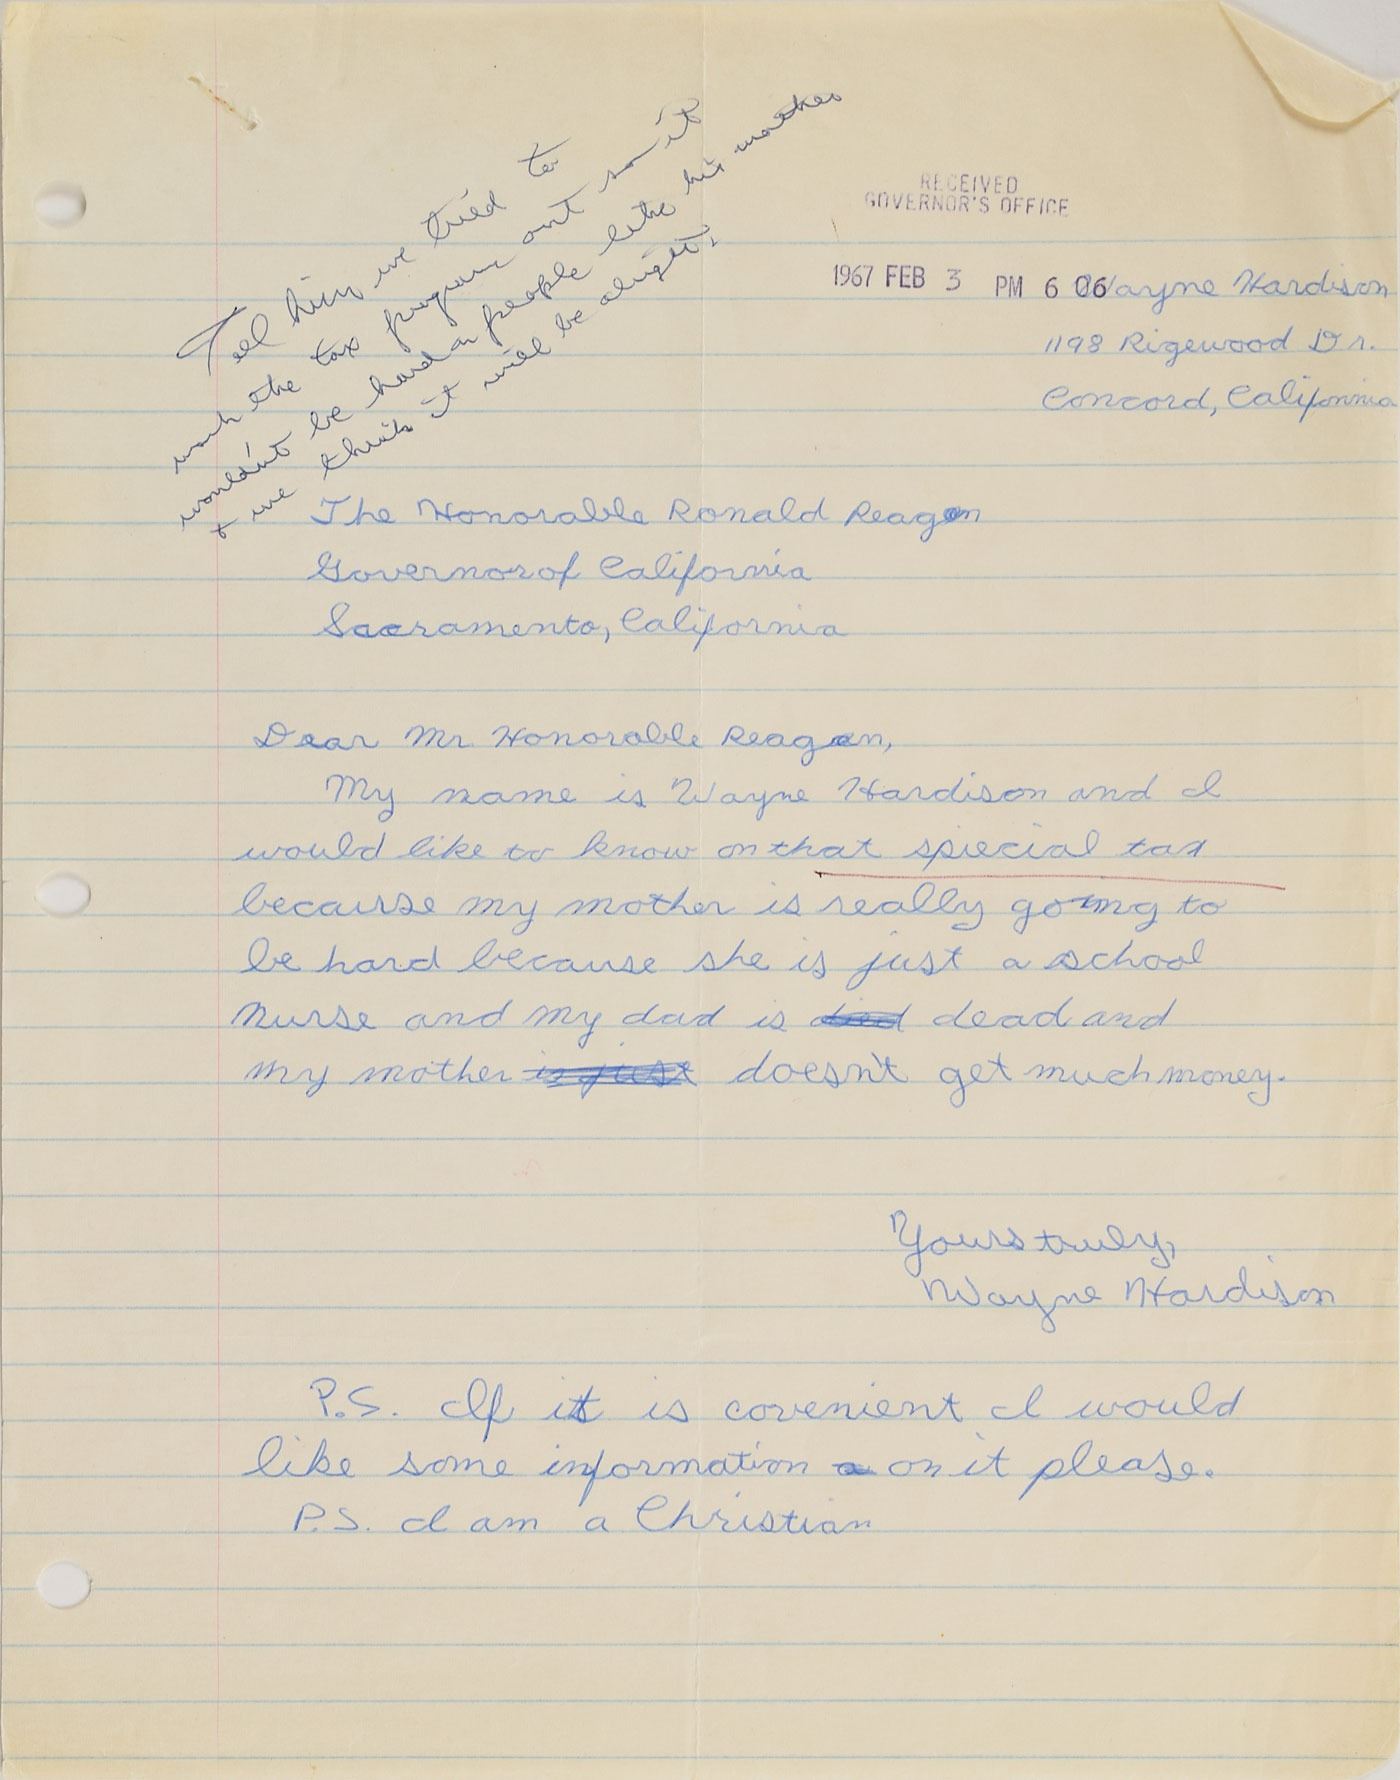 Tell him we tried to
work the tax program out so it
wouldn't be hard on people like his mother
& we think it will be alright.
RECEIVED
GOVERNOR'S OFFICE
1967 FEB 3 PM 6 06
Wayne Hardison
1198 Rigewood Dr.
Concord, California
The Honorable Ronald Reagan
Governor of California
Sacramento, California
Dear Mr Honorable Reagan,
My name is Wayne Hardison and I
would like to know on that spiecial tax
because my mother is really going to
be hard because she is just a school
nurse and my dad is died dead and
my mother is just doesn't get much money.
Yours truly,
Wayne Hardison
P.S. If it is covenient I would
like some information a on it please.
P.S. I am a Christian